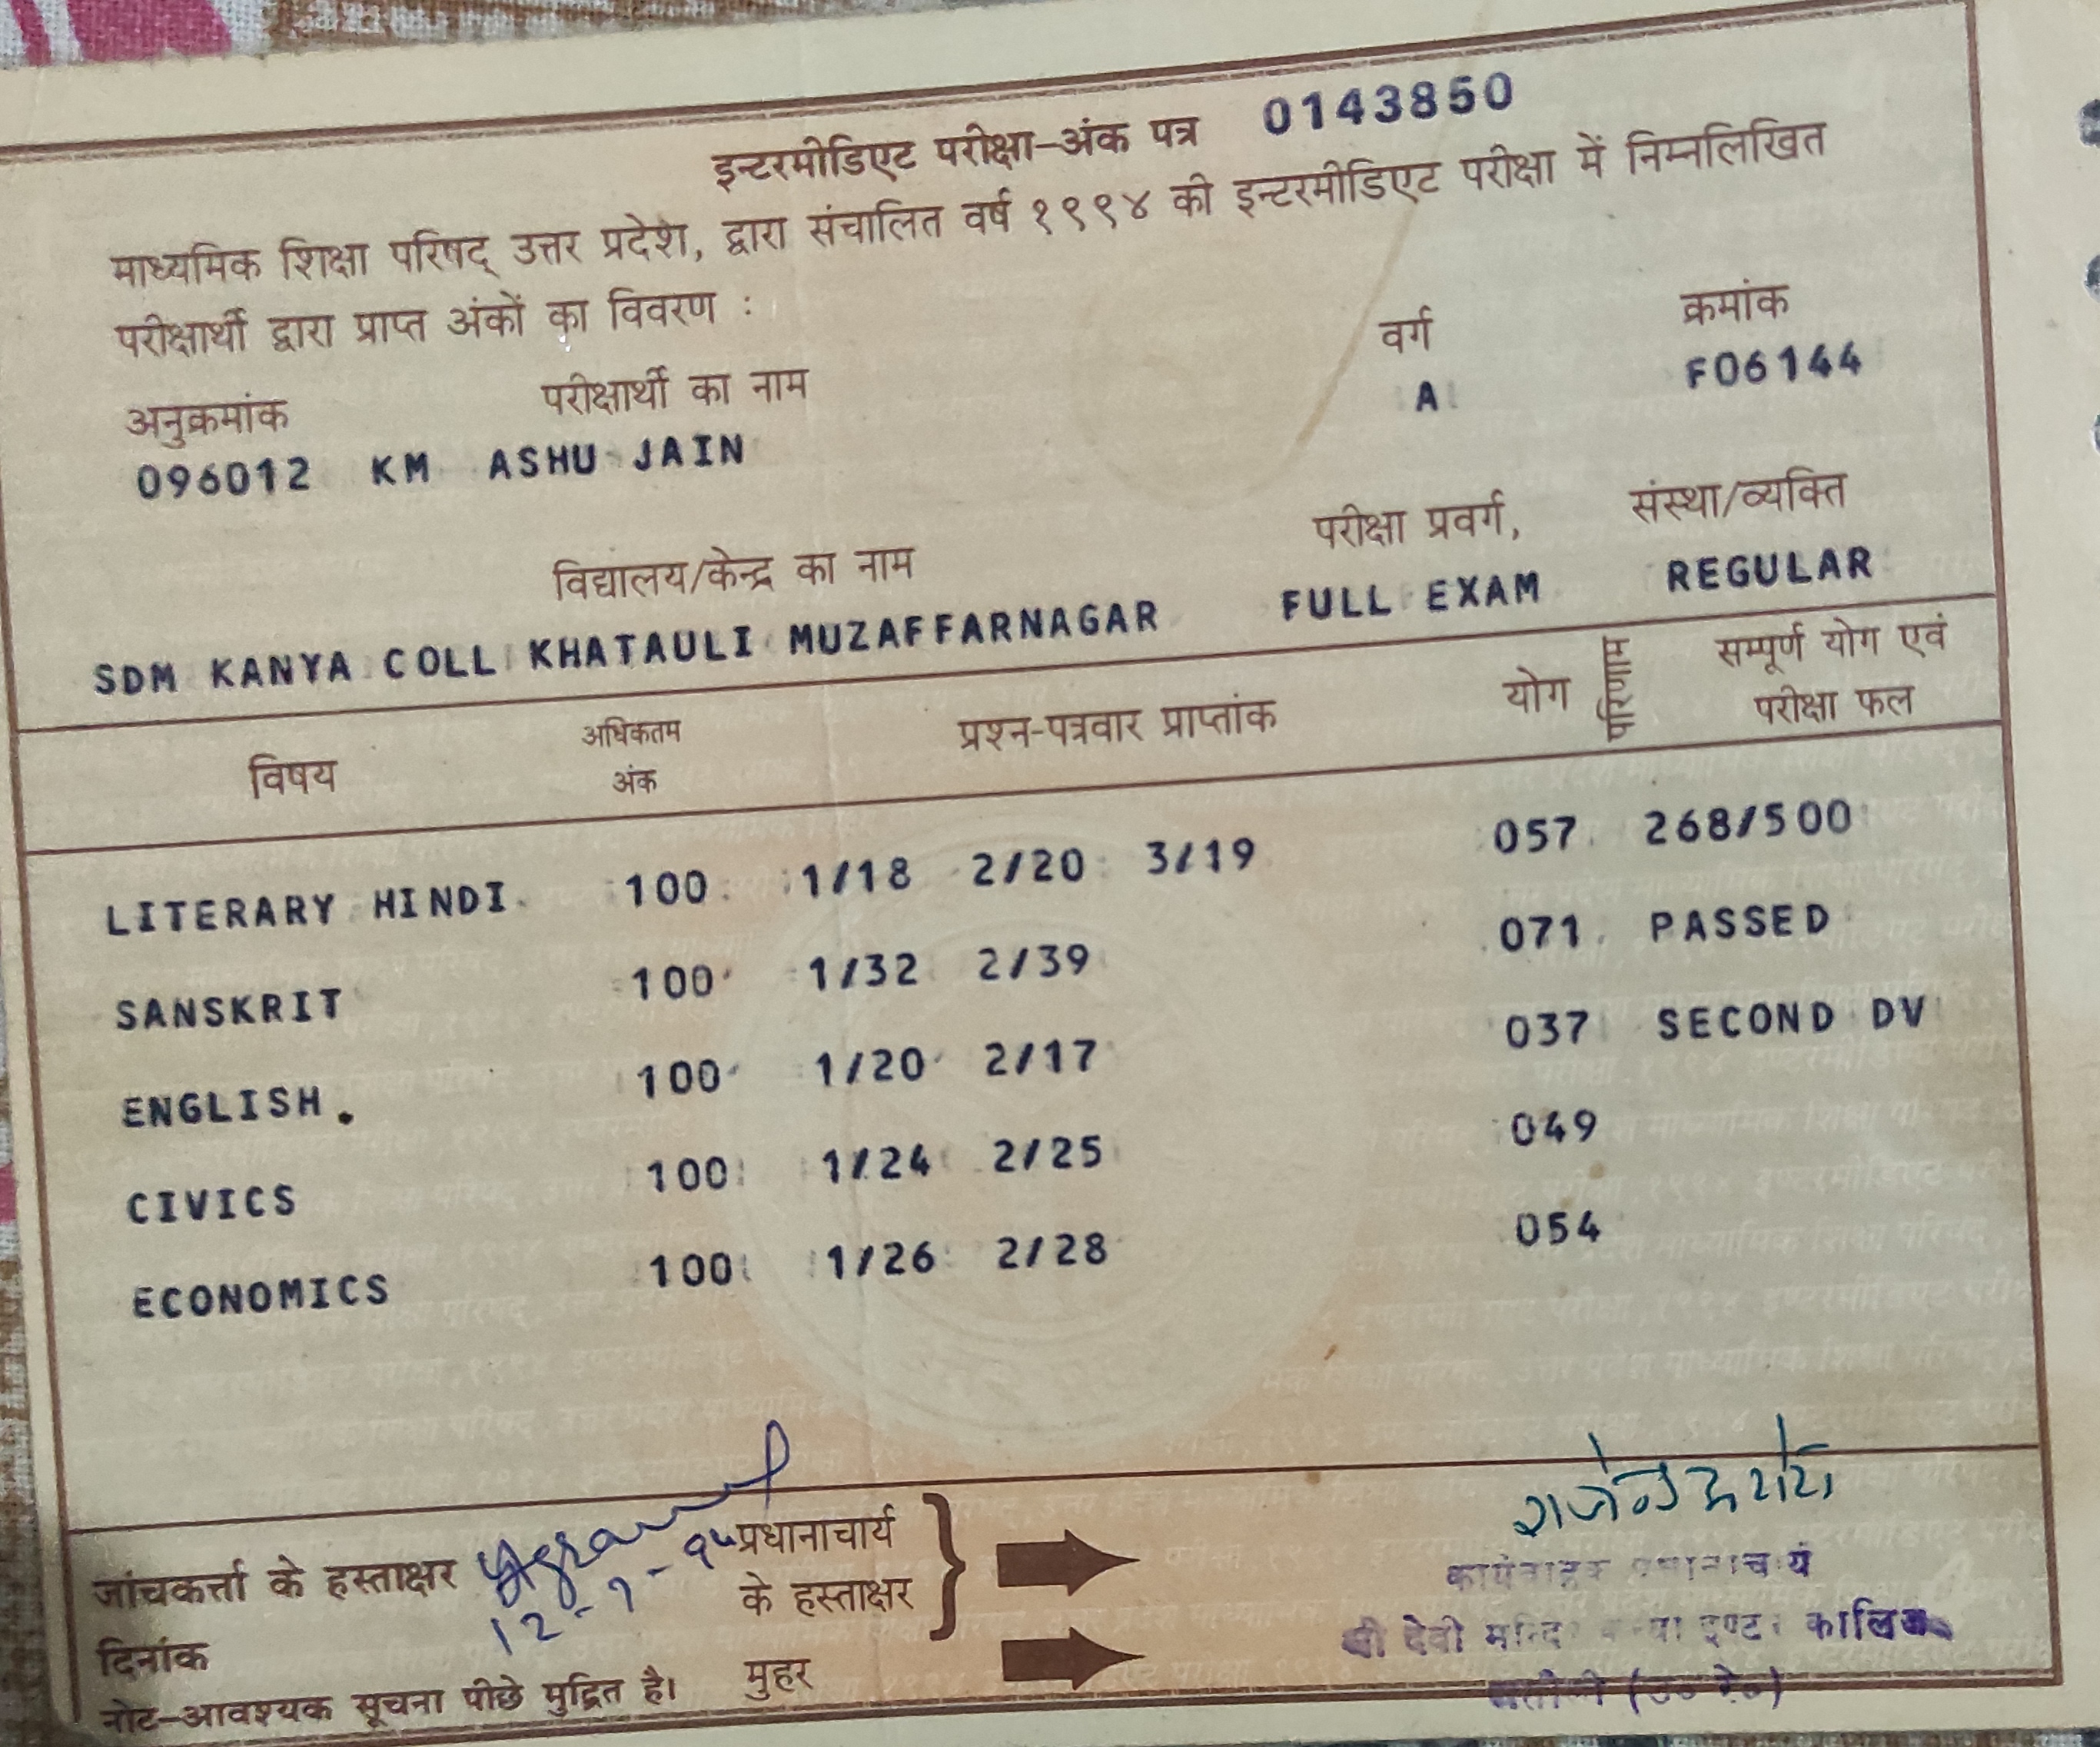 इन्टरमीडिएट परीक्षा-अंक पत्र 0143850
माध्यमिक शिक्षा परिषद् उत्तर प्रदेश, द्वारा संचालित वर्ष १९९४ की इन्टरमीडिएट परीक्षा में निम्नलिखित
परीक्षार्थी द्वारा प्राप्त अंकों का विवरण :
अनुक्रमांक परीक्षार्थी का नाम वर्ग क्रमांक
096012 KM ASHU JAIN A F06144
विद्यालय/केन्द्र का नाम परीक्षा प्रवर्ग, संस्था/व्यक्ति
SDM KANYA COLL KHATAULI MUZAFFARNAGAR FULL EXAM REGULAR
विषय अधिकतम अंक प्रश्न-पत्रवार प्राप्तांक योग परिणाम सम्पूर्ण योग एवं परीक्षा फल
LITERARY HINDI 100 1/18 2/20 3/19 057 268/500
SANSKRIT 100 1/32 2/39 071 PASSED
ENGLISH. 100 1/20 2/17 037 SECOND DV
CIVICS 100 1/24 2/25 049
ECONOMICS 100 1/26 2/28 054
जांचकर्त्ता के हस्ताक्षर प्रधानाचार्य
के हस्ताक्षर
दिनांक मुहर
नोट-आवश्यक सूचना पीछे मुद्रित है।
देवी कालिज